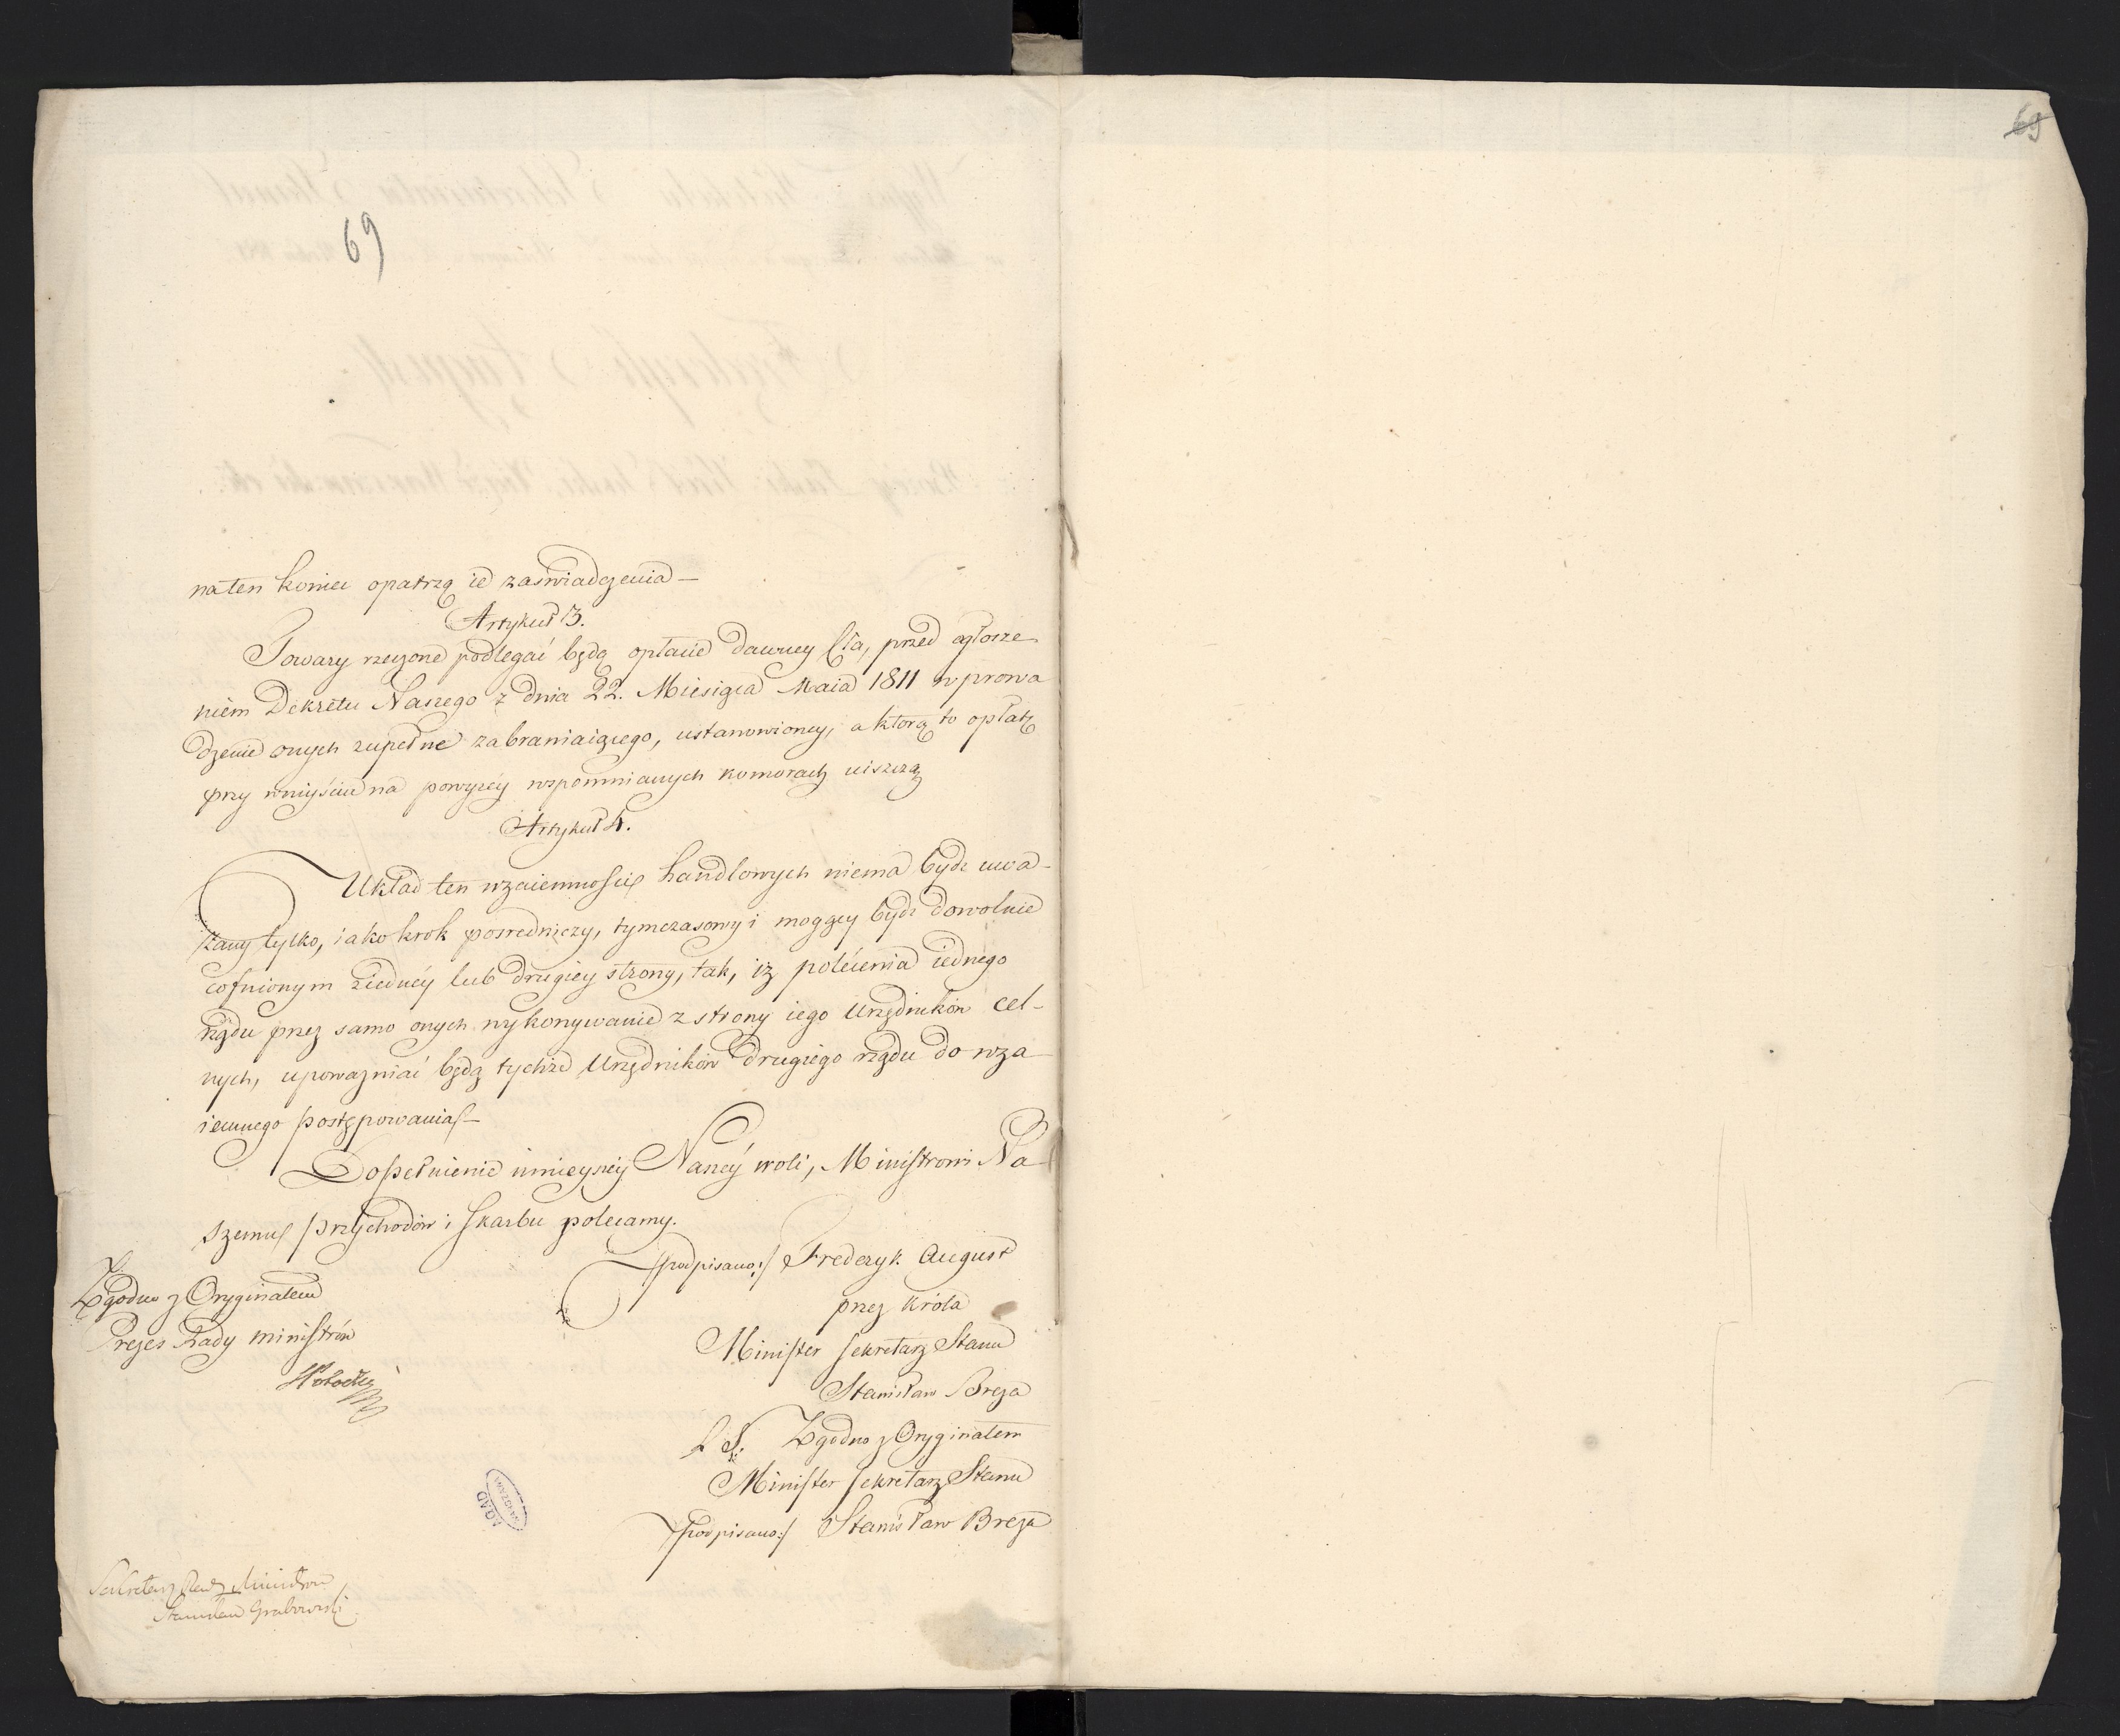 69
69
na ten koniec opatrzą ie zaswiadczenia —
Artykuł 3.
Towary rzeczone podlegać będą opłacie dawney Cła, przed ogłosze
niem Dekretu Naszego z dnia 22. Miesiąca Maia 1811 wprowa
dzenie onych zupełne zabraniaiącego, ustanowioney, a którą to opłatę
przy wniyściu na powyzéy wspomnianych komorach uiszczą
Artykuł 4.
Układ ten wzaiemnościs handlowych niema bydz uwa-
żany tylko, iako krok posredniczy, tymczasowy i mogący bydz dowolnie
cofnionym ziednéy lub drugiey strony, tak, iz polécenia iednego
rządu przez samo onych wykonywanie z strony iego Urzędników cel-
nych, upoważniać będą tychże Urzędników drugiego rządu do wza
iemnego postępowania —
Dopełnienie ninieyszéy Naszéy woli, Ministrowi Na
szemu Przychodów i Skarbu polecamy.
/podpisano:/ Frederyk August
przez Króla
Minister Sekretarz Stanu
Stanisław Breza
L. S. Zgodno z Oryginałem
Minister Sekretarz Stanu
/podpisano:/ Stanisław Breza
Zgodno z Oryginałem
Prezes Rady Ministrów
AGAD
WARSZAWA
Sekretarz Rady Ministrów
Stanisław Grabowski